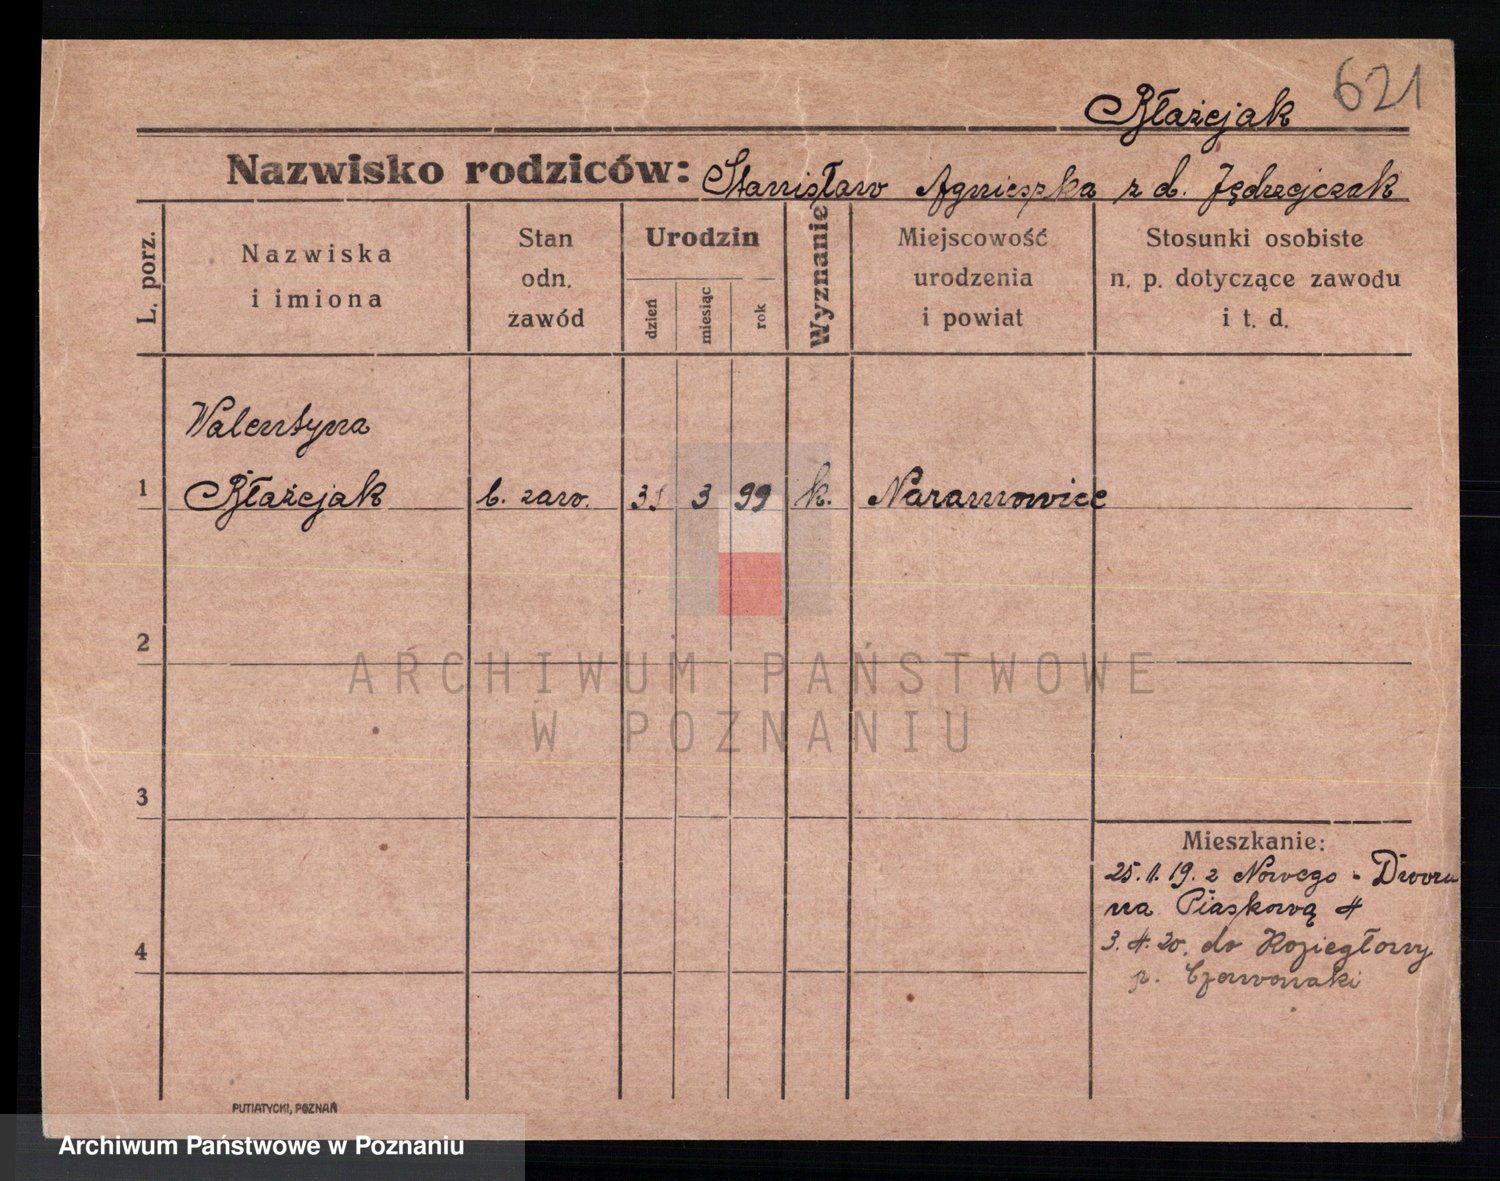 621
Błażejak
Nazwisko rodziców: Stanisław Agnieszka z d. Jędrzejczak
L. porz.
Nazwiska
i imiona
Stan
odn.
zawód
Urodzin
dzień
miesiąc
rok
Wyznanie
Miejscowość
urodzenia
i powiat
Stosunki osobiste
n. p. dotyczące zawodu
i t. d.
Walentyna
1 Błażejak b. zaw. 31 3 99 k. Naramowice
2
3
4
Mieszkanie:
25. 1. 19. z Nowego - Dworu
na Piaskową 4
3. 4. 20. do Koziegłowy
p. Czerwonaki
PUTIATYCKI, POZNAŃ
ARCHIWUM PAŃSTWOWE
W POZNANIU
Archiwum Państwowe w Poznaniu